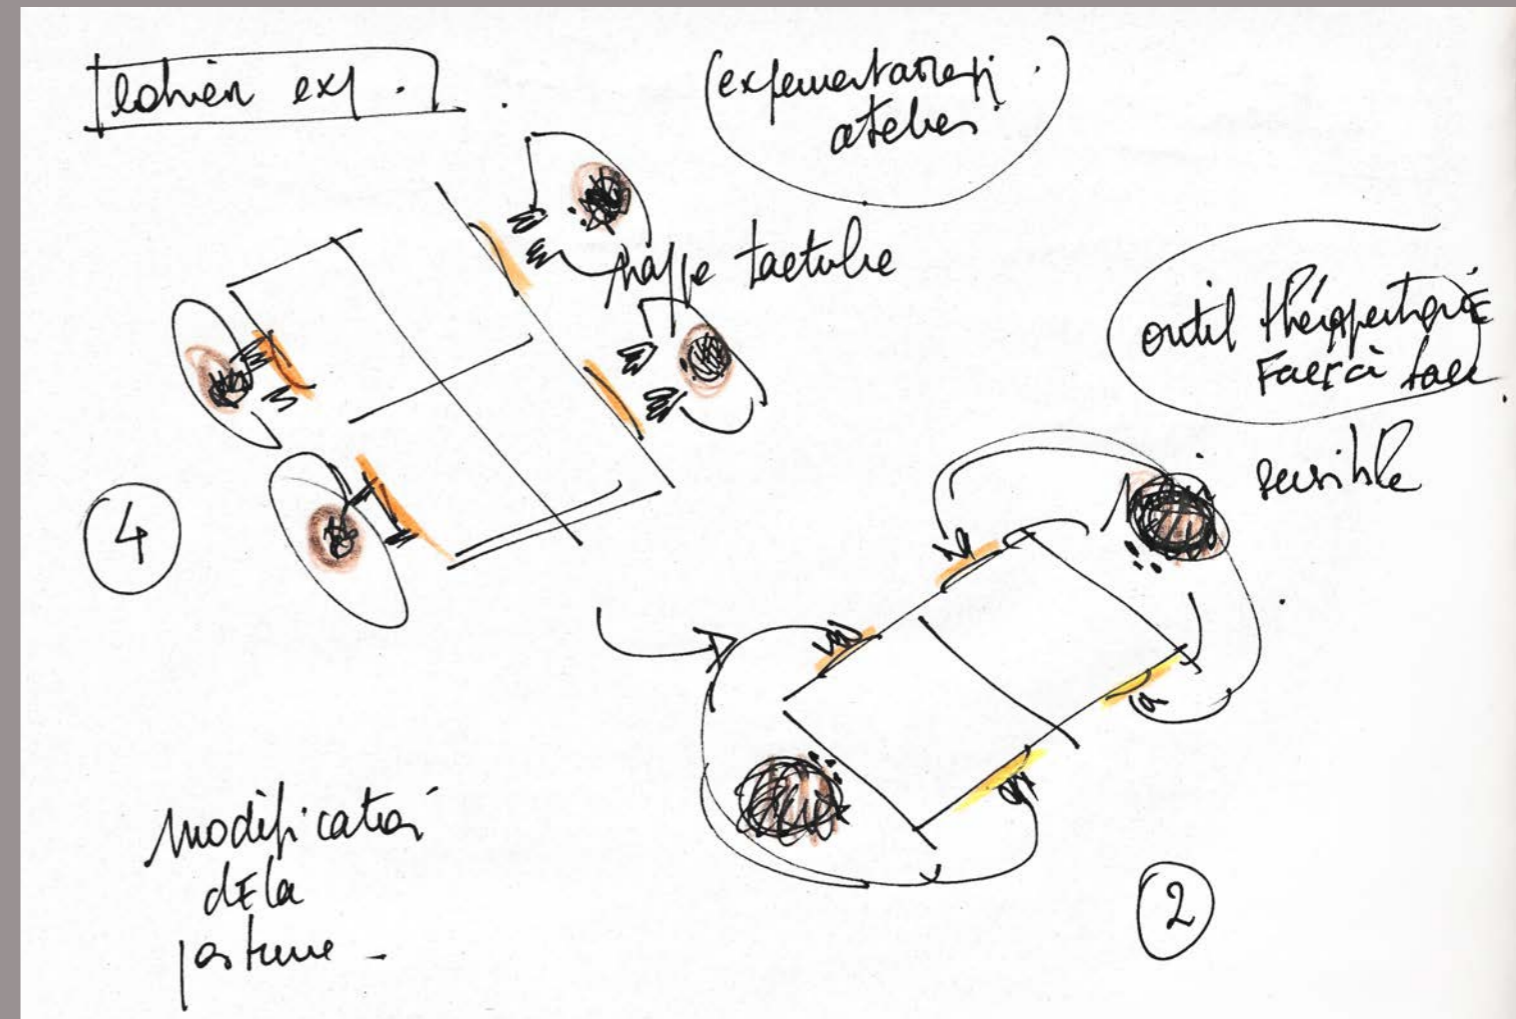 cahier exp.
(expérimentation
atelier)
nappe tactile
outil thérapeutique
Face à face
sensible
4
modification
dE la
posture -
2